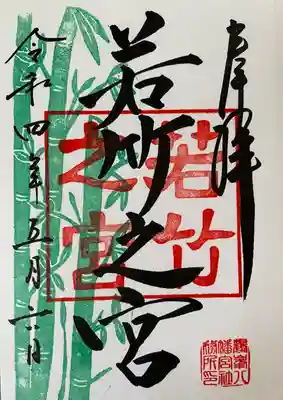 奉拝
若竹之宮
若竹
之宮
令和四年五月六日
鶴峯八
幡宮社
務所印